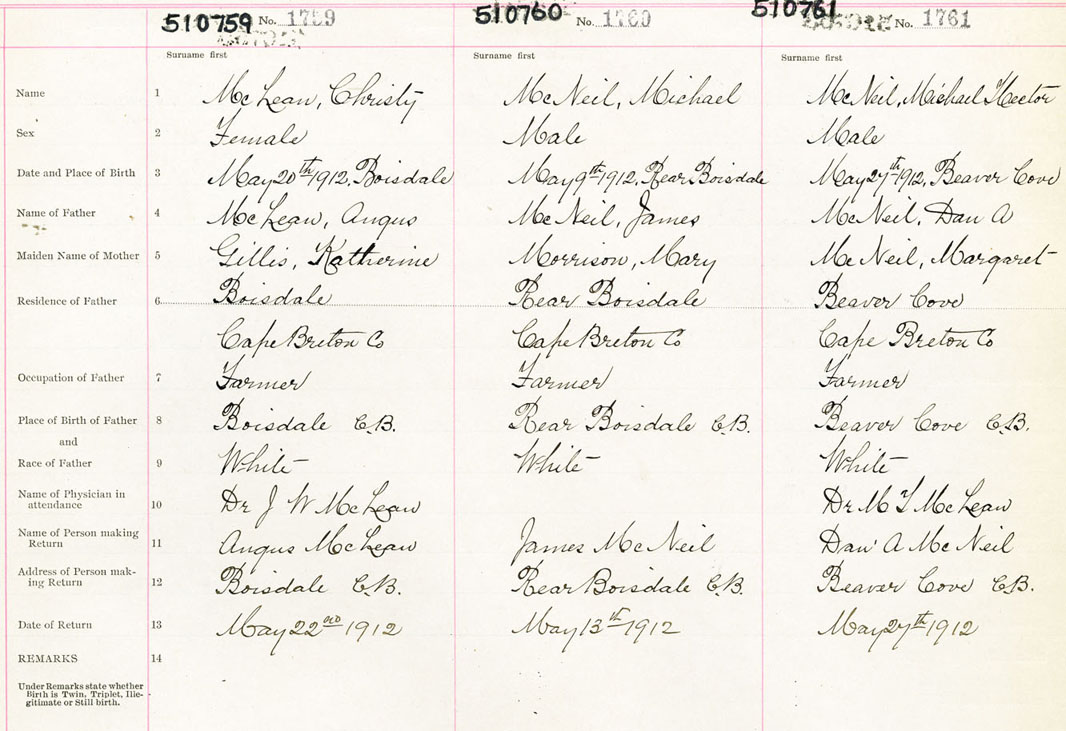 510759 No. 1759 510760 No. 1760 510761 No. 1761
Surname first Surname first Surname first
Name 1 McLean, Christy McNeil, Michael McNeil, Michael Hector
Sex 2 Female Male Male
Date and Place of Birth 3 May 20th 1912, Boisdale May 9th 1912, Rear Boisdale May 27th 1912, Beaver Cove
Name of Father 4 McLean, Angus McNeil, James McNeil, Dan A
Maiden Name of Mother 5 Gillis, Katherine Morrison, Mary McNeil, Margaret
Residence of Father 6 Boisdale Rear Boisdale Beaver Cove
Cape Breton Co Cape Breton Co Cape Breton Co
Occupation of Father 7 Farmer Farmer Farmer
Place of Birth of Father 8 Boisdale C.B. Rear Boisdale C.B. Beaver Cove C.B.
and
Race of Father 9 White White White
Name of Physician in
attendance 10 Dr J W McLean Dr M McLean
Name of Person making
Return 11 Angus McLean James McNeil Dan A McNeil
Address of Person mak-
ing Return 12 Boisdale C.B. Rear Boisdale C.B. Beaver Cove C.B.
Date of Return 13 May 22nd 1912 May 13th 1912 May 27th 1912
REMARKS 14
Under Remarks state whether
Birth is Twin, Triplet, Ille-
gitimate or Still birth.